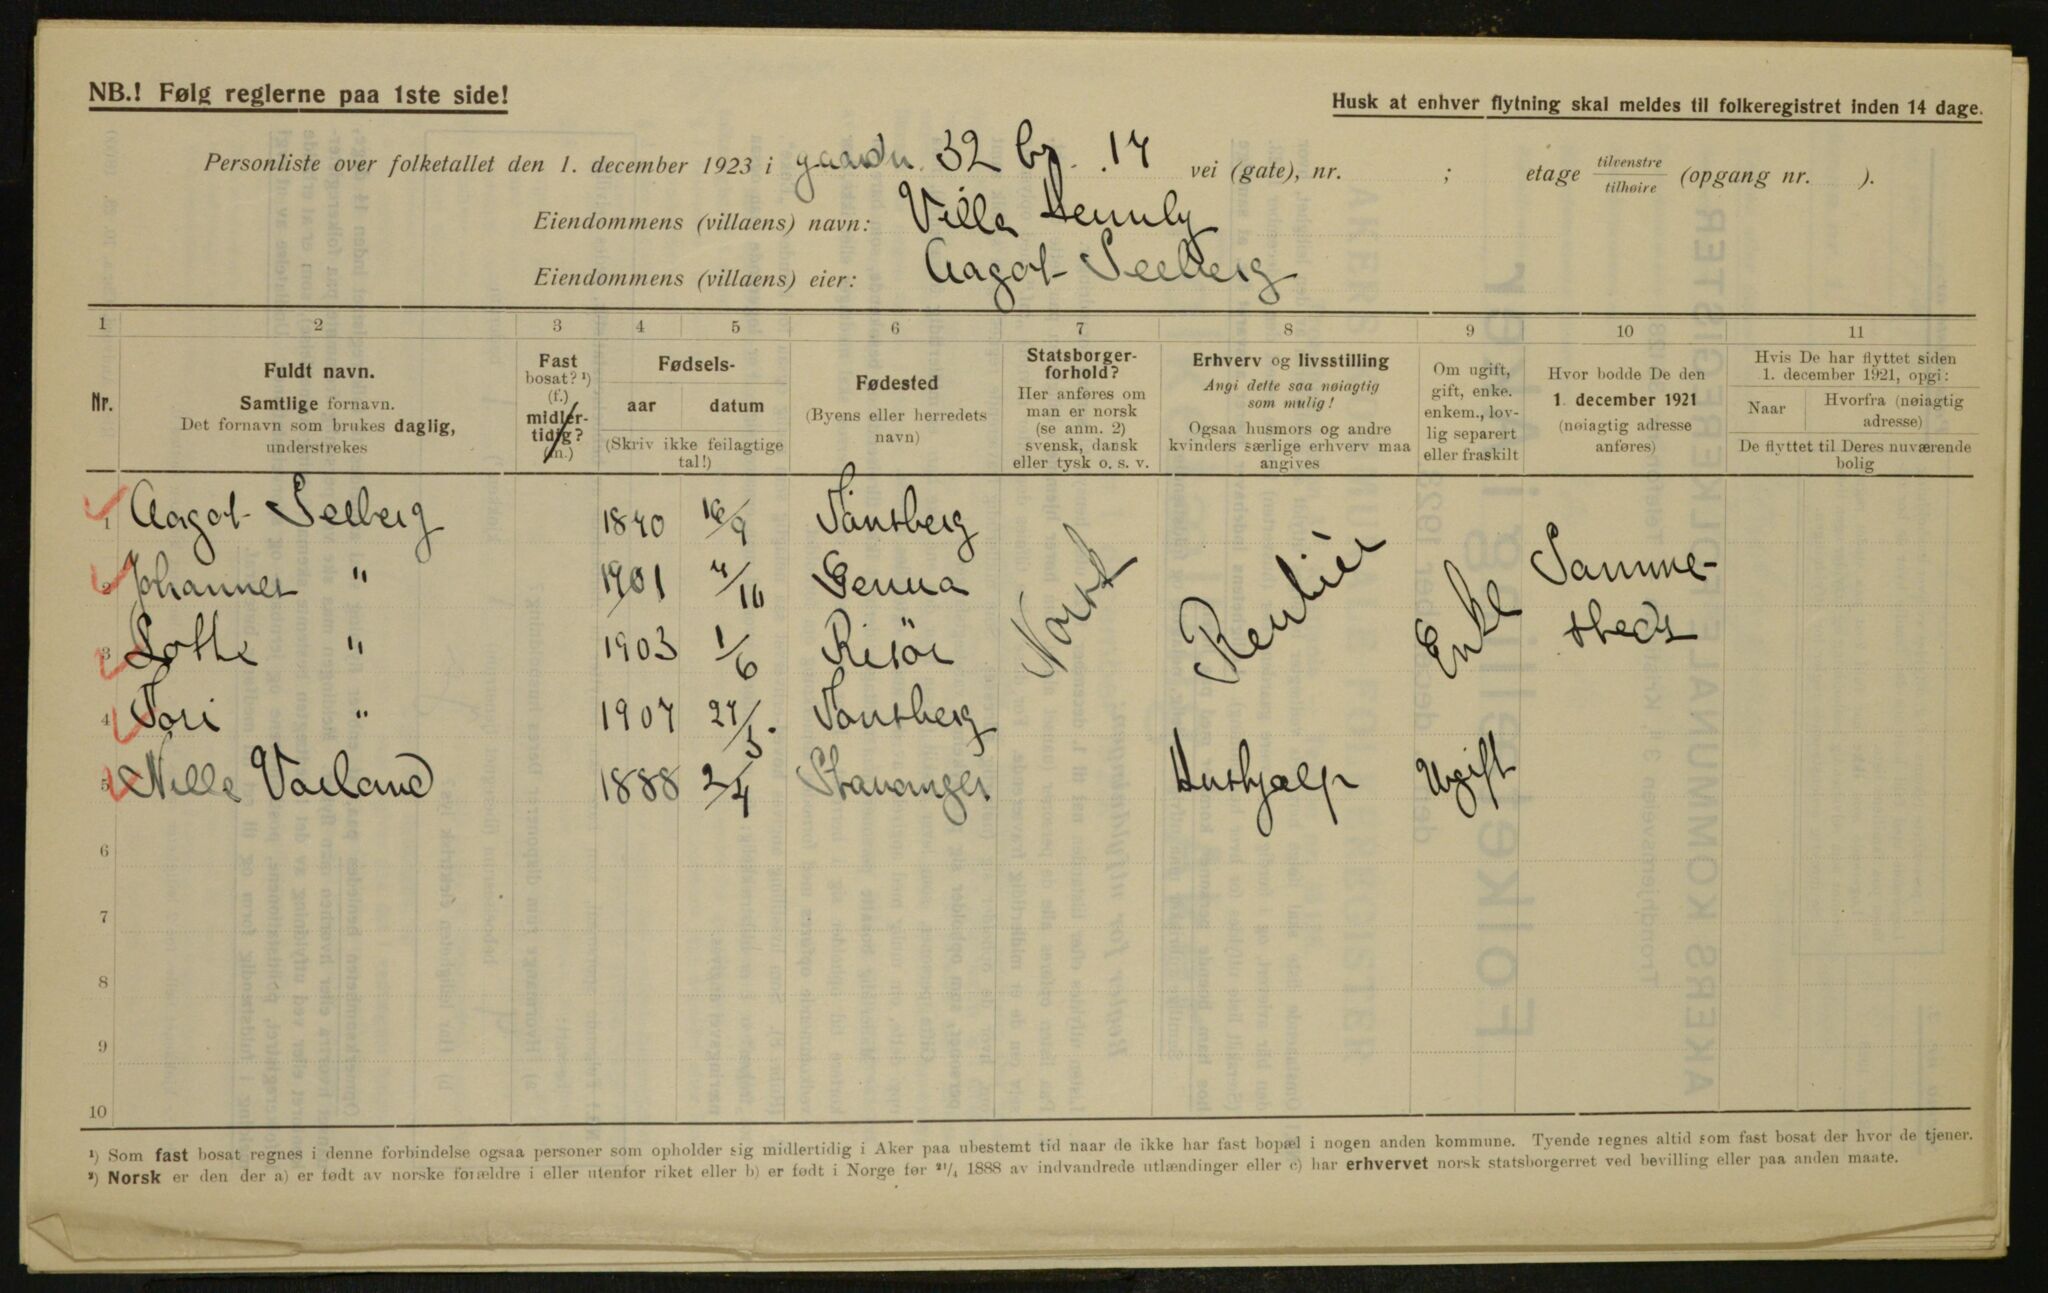 NB.! Følg reglerne paa 1ste side!
Husk at enhver flytning skal meldes til folkeregistret inden 14 dage.
Personliste over folketallet den 1. december 1923 i gaardn. 32 br. 17 vei (gate), nr. ; etage tilvenstre / tilhøire (opgang nr. ).
Eiendommens (villaens) navn: Villa Hemly
Eiendommens (villaens) eier: Aagot Seeberg
1 2 3 4 5 6 7 8 9 10 11
Nr.
Fuldt navn.
Samtlige fornavn.
Det fornavn som brukes daglig,
understrekes
Fast
bosat? ¹)
(f.)
midler-
tidig?
(m.)
Fødsels-
aar datum
(Skriv ikke feilagtige
tal!)
Fødested
(Byens eller herredets
navn)
Statsborger-
forhold?
Her anføres om
man er norsk
(se anm. 2)
svensk, dansk
eller tysk o. s. v.
Erhverv og livsstilling
Angi dette saa nøiagtig
som mulig!
Ogsaa husmors og andre
kvinders særlige erhverv maa
angives
Om ugift,
gift, enke.
enkem., lov-
lig separert
eller fraskilt
Hvor bodde De den
1. december 1921
(nøiagtig adresse
anføres)
Hvis De har flyttet siden
1. december 1921, opgi:
Naar
Hvorfra (nøiagtig
adresse)
De flyttet til Deres nuværende
bolig
1 Aagot Seeberg 1870 16/9 Tönsberg Norsk Rentier Enke Samme-
2 Johannes " 1901 4/10 Genua
3 Lotte " 1903 1/6 Risör steds
4 Tori " 1907 27/5. Tönsberg
5 Nille Varland 1888 2/4 Stavanger Hushjælp Ugift
6
7
8
9
10
¹) Som fast bosat regnes i denne forbindelse ogsaa personer som opholder sig midlertidig i Aker paa ubestemt tid naar de ikke har fast bopæl i nogen anden kommune. Tyende regnes altid som fast bosat der hvor de tjener.
²) Norsk er den der a) er født av norske forældre i eller utenfor riket eller b) er født i Norge før 21/4 1888 av indvandrede utlændinger eller c) har erhvervet norsk statsborgerret ved bevilling eller paa anden maate.